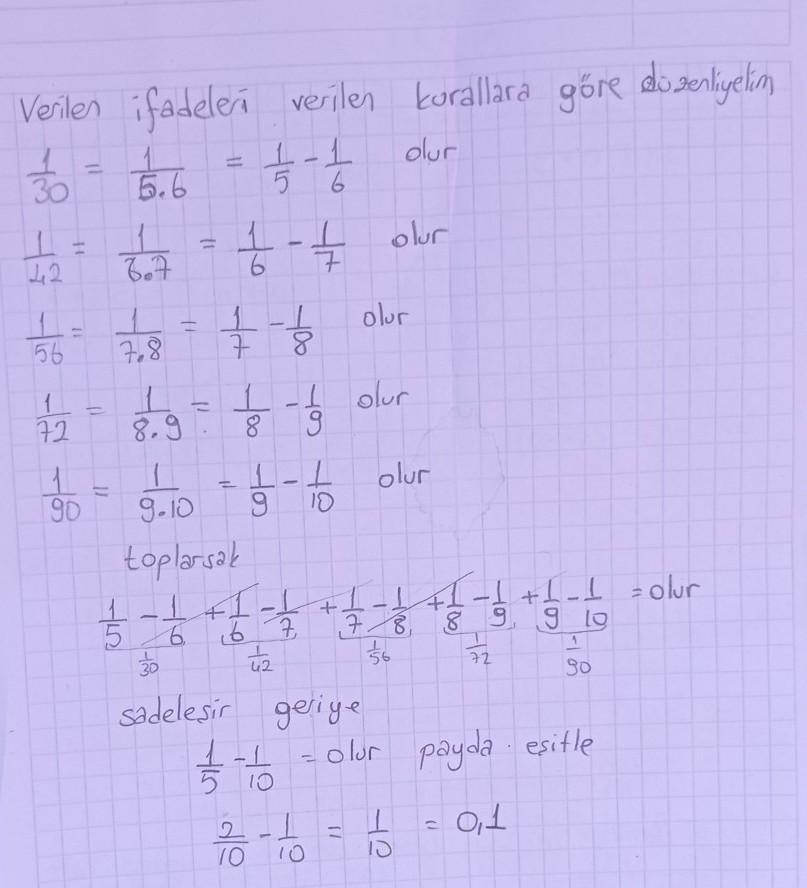 Verilen ifadeleri verilen kurallara göre düzenliyelim
1/30 = 1/5.6 = 1/5 - 1/6 olur
1/42 = 1/6.7 = 1/6 - 1/7 olur
1/56 = 1/7.8 = 1/7 - 1/8 olur
1/72 = 1/8.9 = 1/8 - 1/9 olur
1/90 = 1/9.10 = 1/9 - 1/10 olur
toplarsak
1/5 - 1/6 + 1/6 - 1/7 + 1/7 - 1/8 + 1/8 - 1/9 + 1/9 - 1/10 = olur
1/30 1/42 1/56 1/72 1/90
sadelesir geriye
1/5 - 1/10 = olur payda esitle
2/10 - 1/10 = 1/10 = 0,1